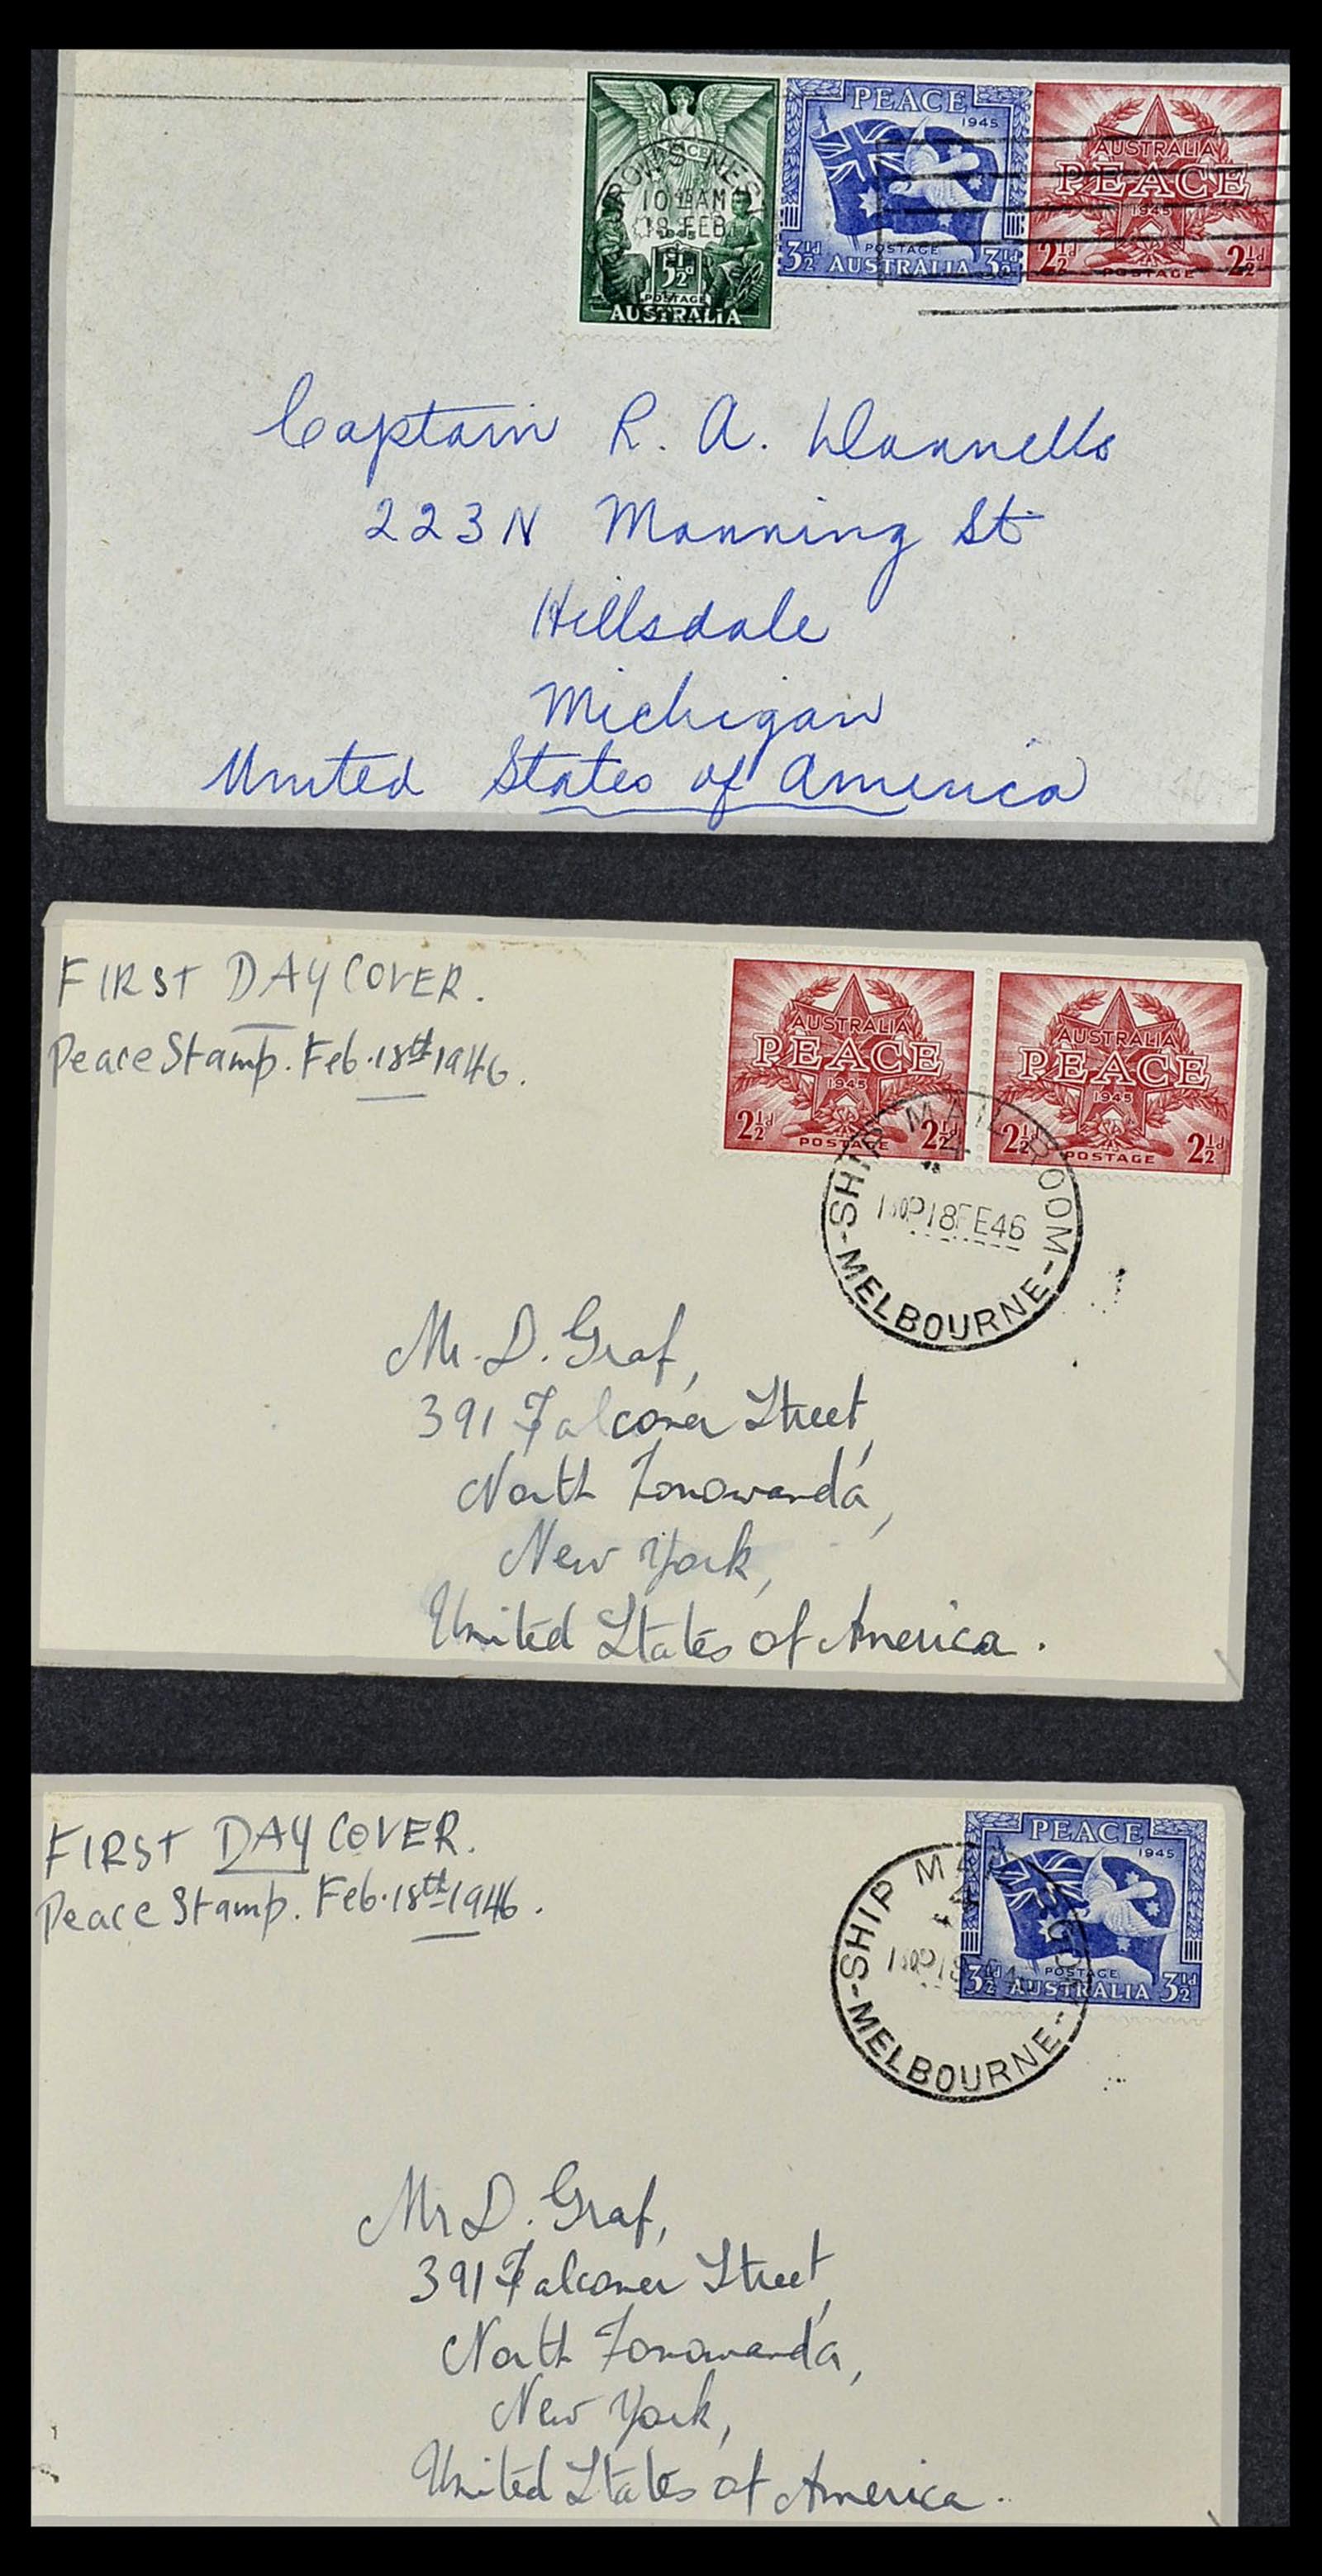 PEACE
1945
POSTAGE
3½d AUSTRALIA 3½d
AUSTRALIA
PEACE
1945
2½d 2½d
POSTAGE
10 AM
18 FEB
5½d
POSTAGE
AUSTRALIA
Captain R. A.
223 N Manning St
Hillsdale
Michigan
United States of America
FIRST DAY COVER.
Peace Stamp. Feb. 18th 1946.
AUSTRALIA
PEACE
1945
2½d 2½d
POSTAGE
AUSTRALIA
PEACE
1945
2½d 2½d
POSTAGE
SHIP MAIL ROOM
18FE46
-MELBOURNE-
Mr. D. Graf,
391 Falconer Street,
North Tonowanda,
New York,
United States of America.
FIRST DAY COVER.
Peace Stamp. Feb. 18th 1946.
PEACE
1945
POSTAGE
3½d AUSTRALIA 3½d
SHIP MAIL ROOM
-MELBOURNE-
Mr D. Graf,
391 Falconer Street,
North Tonowanda,
New York,
United States of America.